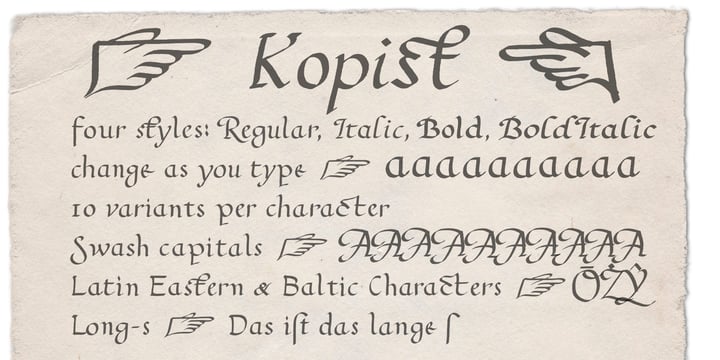 ☞ Kopist ☜
four styles: Regular, Italic, Bold, BoldItalic
change as you type ☞ aaaaaaaaaa
10 variants per character
Swash capitals ☞ AAAAAAAAAA
Latin Eastern & Baltic Characters ☞ ŌŽÝ
Long-s ☞ Das iſt das lange ſ